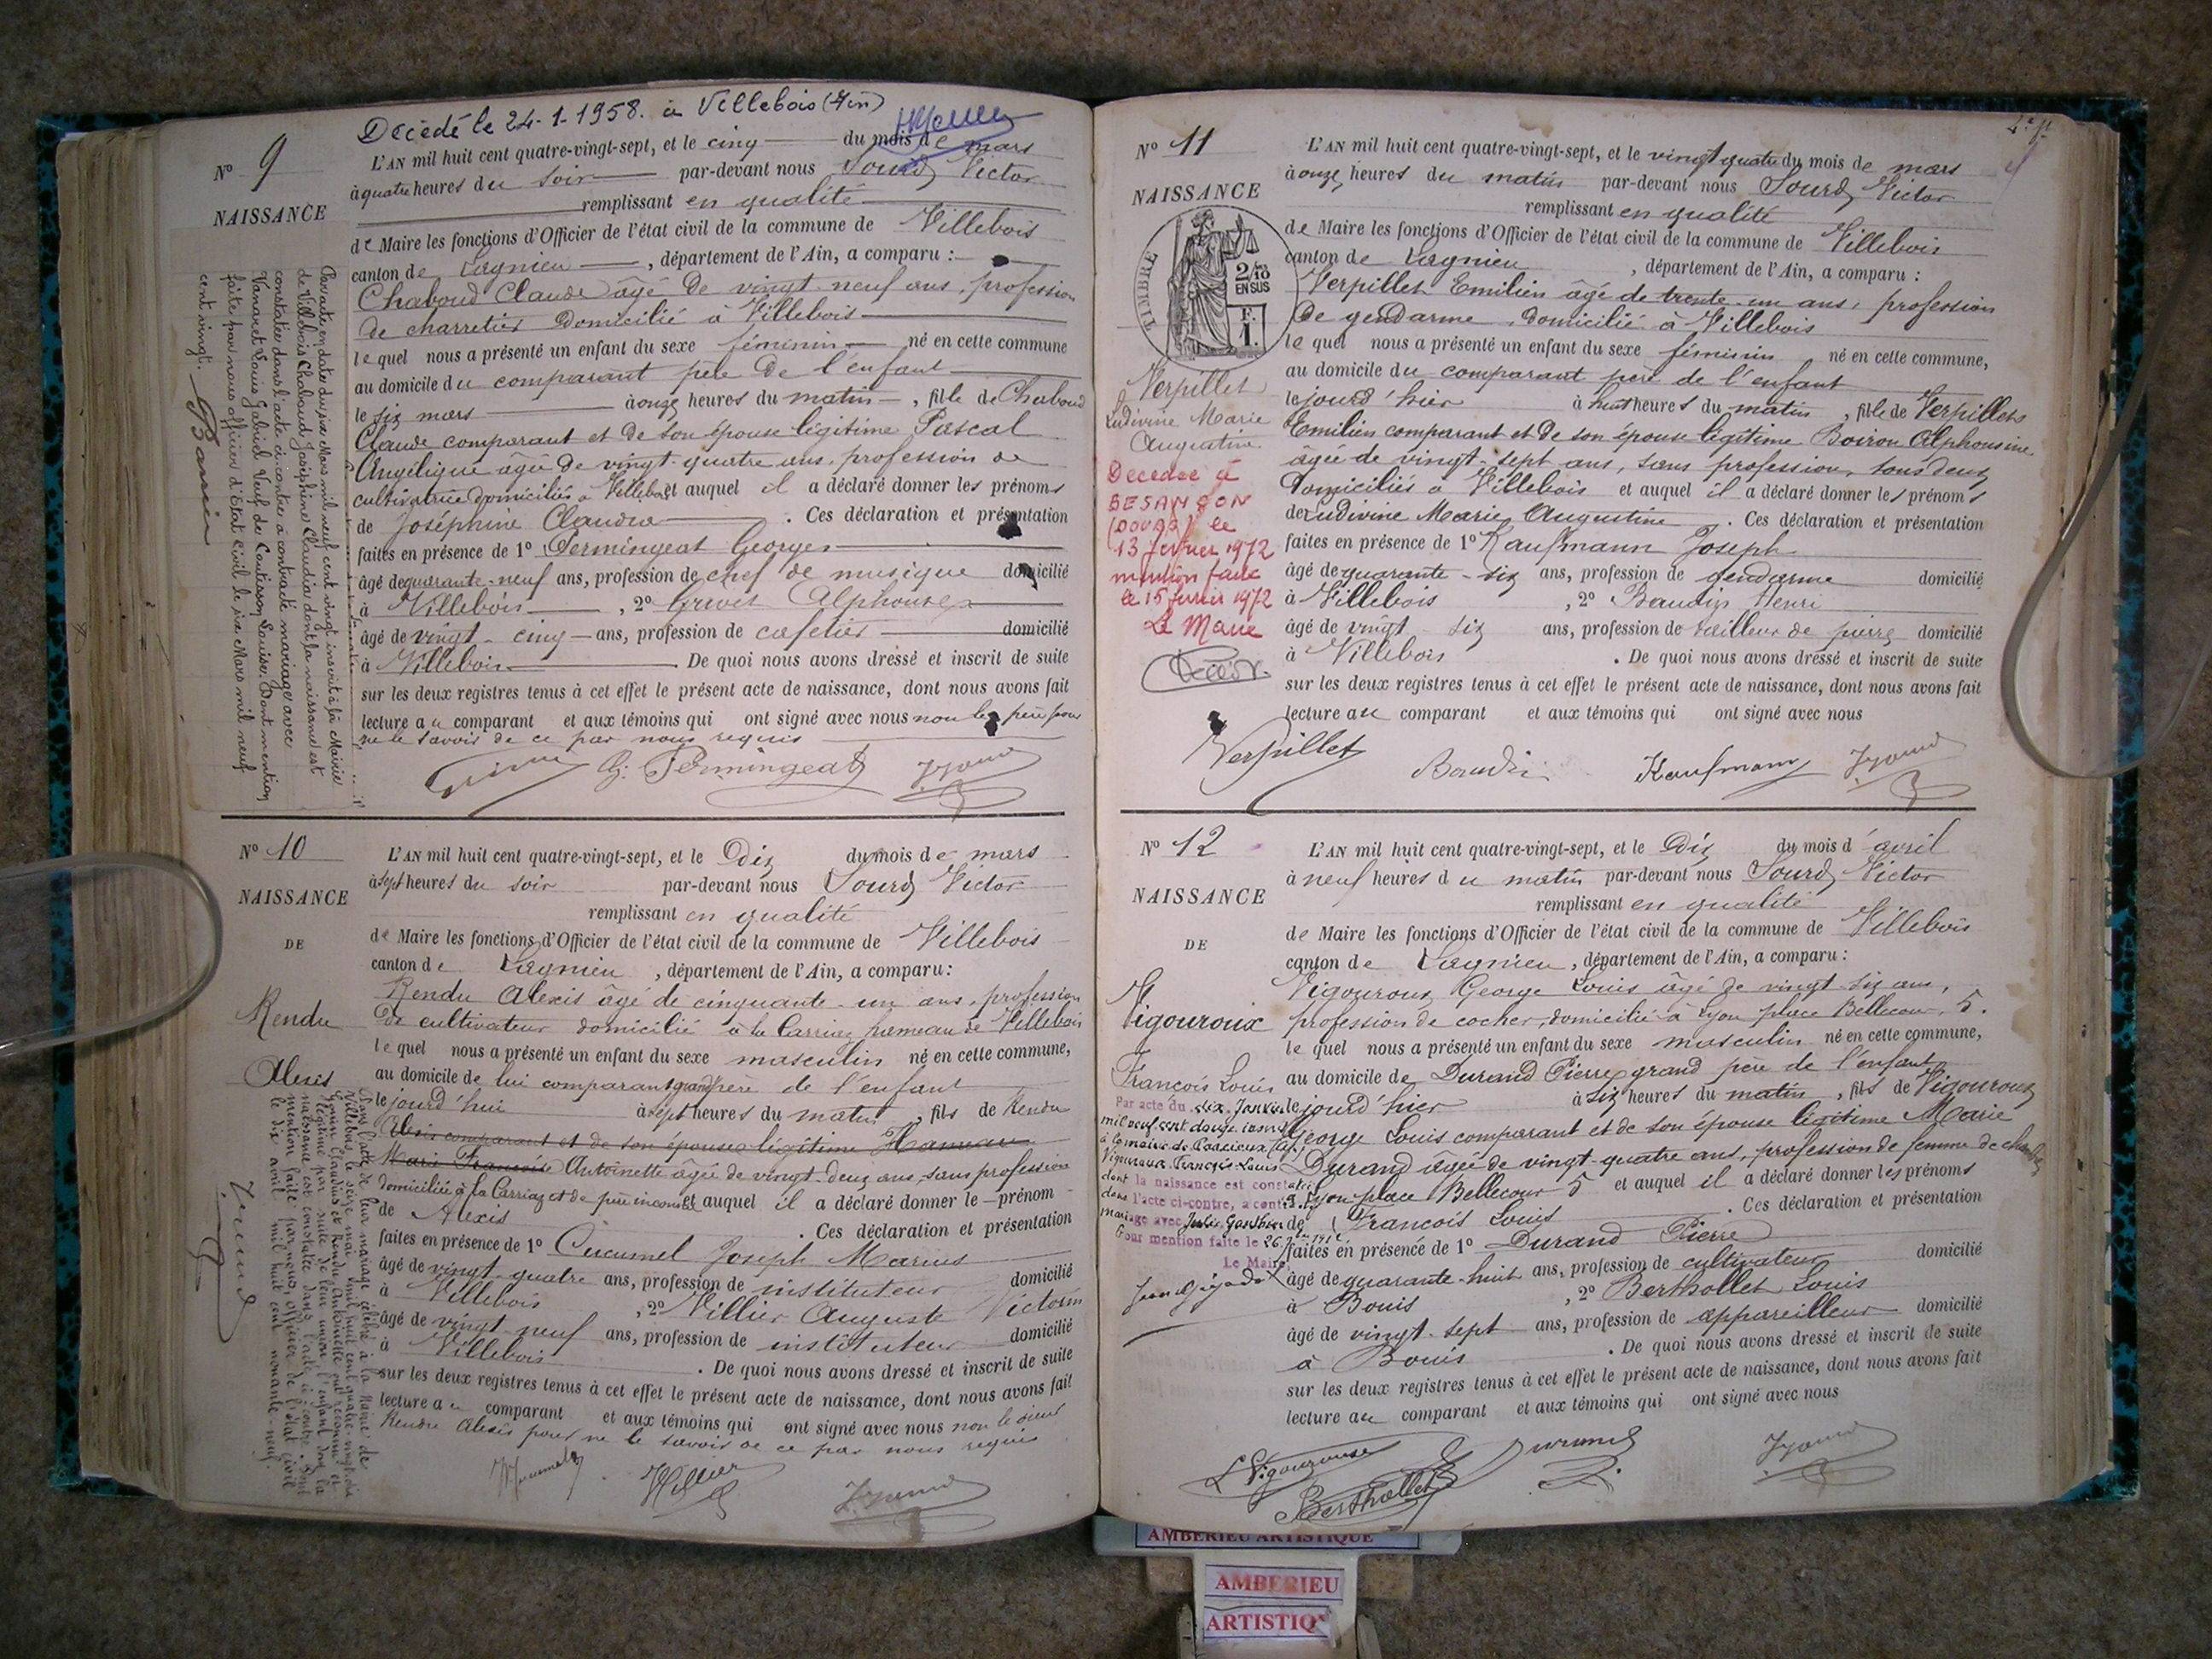 Décédé le 24-1-1958. à Villebois (Ain)
N° 9
NAISSANCE
L'AN mil huit cent quatre-vingt-sept, et le cinq du mois de mars
à quatre heures du soir par-devant nous Sourd Victor
remplissant en qualité
de Maire les fonctions d'Officier de l'état civil de la commune de Villebois
canton de Lagnieu, département de l'Ain, a comparu :
Chaboud Claude âgé de vingt-neuf ans, profession
de charretier domicilié à Villebois
lequel nous a présenté un enfant du sexe féminin né en cette commune
au domicile du comparant père de l'enfant
le six mars à onze heures du matin, fille de Chaboud
Claude comparant et de son épouse légitime Pascal
Angélique âgée de vingt-quatre ans, profession de
cultivatrice domiciliés à Villebois et auquel il a déclaré donner les prénoms
de Joséphine Claudia. Ces déclaration et présentation
faites en présence de 1° Permingeat Georges
âgé de quarante-neuf ans, profession de chef de musique domicilié
à Villebois, 2° Grivet Alphonse
âgé de vingt-cinq ans, profession de cafetier domicilié
à Villebois. De quoi nous avons dressé et inscrit de suite
sur les deux registres tenus à cet effet le présent acte de naissance, dont nous avons fait
lecture au comparant et aux témoins qui ont signé avec nous non le père pour
ne le savoir de ce par nous requis
G. Permingeat
Par acte en date du six Mars mil neuf cent vingt inscrit à la Mairie
de Villebois Chaboud Joséphine Claudia dont la naissance est
constatée dans l'acte ci-contre a contracté mariage avec
Louis Gabriel Veuf de Louise. Dont mention
faite par nous officier d'Etat Civil le six Mars mil neuf
cent vingt.
N° 10
NAISSANCE
DE
Rendu
Alexis
L'AN mil huit cent quatre-vingt-sept, et le Dix du mois de mars
à sept heures du soir par-devant nous Sourd Victor
remplissant en qualité
de Maire les fonctions d'Officier de l'état civil de la commune de Villebois
canton de Lagnieu, département de l'Ain, a comparu :
Rendu Alexis âgé de cinquante-un ans, profession
de cultivateur domicilié à la Carriaz hameau de Villebois
lequel nous a présenté un enfant du sexe masculin né en cette commune,
au domicile de lui comparant grand père de l'enfant
le jourd'hui à sept heures du matin, fils de Rendu
Alexis comparant et de son épouse légitime
Marie Françoise Antoinette âgée de vingt-deux ans, sans profession
domiciliée à la Carriaz et de père inconnu et auquel il a déclaré donner le prénom
de Alexis. Ces déclaration et présentation
faites en présence de 1° Cucumel Joseph Marius
âgé de vingt-quatre ans, profession de instituteur domicilié
à Villebois, 2° Villier Auguste Victorin
âgé de vingt-neuf ans, profession de instituteur domicilié
à Villebois. De quoi nous avons dressé et inscrit de suite
sur les deux registres tenus à cet effet le présent acte de naissance, dont nous avons fait
lecture au comparant et aux témoins qui ont signé avec nous non le sieur
Rendu Alexis pour ne le savoir de ce par nous requis
Dans l'acte de leur mariage célébré à la Mairie de
Villebois le seize mai mil huit cent quatre-vingt-dix
Claudius et Rendu Antoinette ont reconnu et
légitimé par suite de leur union l'enfant dont la
naissance est constatée dans l'acte ci-contre. Dont
mention faite par nous, officier de l'état civil
le dix avril mil huit cent nonante-neuf.
N° 11
NAISSANCE
TIMBRE
2/10
EN SUS
F.
1.
Verpillet
Ludivine Marie
Augustine
Décédée à
BESANÇON
(DOUBS) le
13 février 1972
mention faite
le 15 février 1972
Le Maire
L'AN mil huit cent quatre-vingt-sept, et le vingt quatre du mois de mars
à onze heures du matin par-devant nous Sourd Victor
remplissant en qualité
de Maire les fonctions d'Officier de l'état civil de la commune de Villebois
canton de Lagnieu, département de l'Ain, a comparu :
Verpillet Emilien âgé de trente-un ans, profession
de gendarme, domicilié à Villebois
lequel nous a présenté un enfant du sexe féminin né en cette commune,
au domicile du comparant père de l'enfant
le jourd'hier à huit heures du matin, fille de Verpillet
Emilien comparant et de son épouse légitime Boiron Alphonsine
âgée de vingt-sept ans, sans profession, tous deux
domiciliés à Villebois et auquel il a déclaré donner les prénoms
de Ludivine Marie Augustine. Ces déclaration et présentation
faites en présence de 1° Kaufmann Joseph
âgé de quarante-six ans, profession de gendarme domicilié
à Villebois, 2° Baudin Henri
âgé de vingt-six ans, profession de tailleur de pierre domicilié
à Villebois. De quoi nous avons dressé et inscrit de suite
sur les deux registres tenus à cet effet le présent acte de naissance, dont nous avons fait
lecture au comparant et aux témoins qui ont signé avec nous
Verpillet Baudin Kaufmann
N° 12
NAISSANCE
DE
Vigouroux
François Louis
L'AN mil huit cent quatre-vingt-sept, et le Dix du mois d'avril
à neuf heures du matin par-devant nous Sourd Victor
remplissant en qualité
de Maire les fonctions d'Officier de l'état civil de la commune de Villebois
canton de Lagnieu, département de l'Ain, a comparu :
Vigouroux George Louis âgé de vingt-six ans,
profession de cocher, domicilié à Lyon place Bellecour, 5.
lequel nous a présenté un enfant du sexe masculin né en cette commune,
au domicile de Durand Pierre grand père de l'enfant
le jourd'hier à six heures du matin, fils de Vigouroux
George Louis comparant et de son épouse légitime Marie
Durand âgée de vingt-quatre ans, profession de femme de chambre
à Lyon place Bellecour 5 et auquel il a déclaré donner les prénoms
de François Louis. Ces déclaration et présentation
faites en présence de 1° Durand Pierre
âgé de quarante-huit ans, profession de cultivateur domicilié
à Bouis, 2° Berthollet Louis
âgé de vingt-sept ans, profession de appareilleur domicilié
à Bouis. De quoi nous avons dressé et inscrit de suite
sur les deux registres tenus à cet effet le présent acte de naissance, dont nous avons fait
lecture au comparant et aux témoins qui ont signé avec nous
Par acte du dix Janvier
mil neuf cent douze
à la mairie de
Vigouroux François Louis
dont la naissance est constatée
dans l'acte ci-contre, a contracté
mariage avec
Pour mention faite le 26
Le Maire,
L Vigouroux Durand
Berthollet
AMBERIEU ARTISTIQUE
AMBERIEU
ARTISTIQ